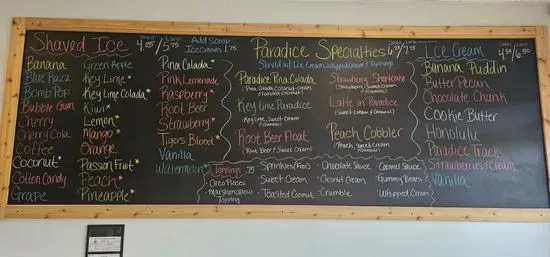 Shaved Ice
Small Large
4.25/5.75
Add Scoop
Ice Cream 1.75
Banana
Blue Razz
Bomb Pop
Bubble Gum
Cherry
Cherry Cola
Coffee
Coconut*
Cotton Candy
Grape
Green Apple
Key Lime*
Key Lime Colada*
Kiwi*
Lemon*
Mango*
Orange
Passion Fruit*
Peach*
Pineapple*
Pina Colada*
Pink Lemonade
Raspberry*
Root Beer
Strawberry*
Tigers Blood*
Vanilla
Watermelon*
Paradice Specialties
Served w/ Ice Cream, Whipped Cream & Toppings
Paradice Pina Colada
Key Lime Paradice
(Key Lime, Sweet Cream
Root Beer Float
(Root Beer & Sweet Cream)
Strawberry Shortcake
Latte in Paradice
Peach Cobbler
(Peach, Sweet Cream
Toppings .75
Oreo Pieces
Marshmallow
Topping
Sprinkles (Free)
Sweet Cream
Toasted Coconut
Chocolate Sauce
Coconut Cream
Crumble
Caramel Sauce
Gummy Bears
Whipped Cream
Ice Cream
Small Large
4.50/6.50
Banana Puddin
Butter Pecan
Chocolate Chunk
Cookie Butter
Honolulu
Paradice Tracks
Strawberries & Cream
Vanilla